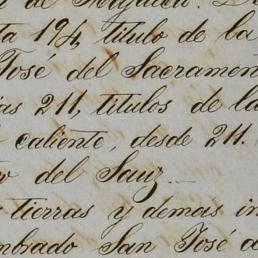 de
ta 174, titulo de la
José del Sacramen
ias 211, titulos de la
caliente, desde 211.
del Sauz
tierras y demas in
mbrado San José d